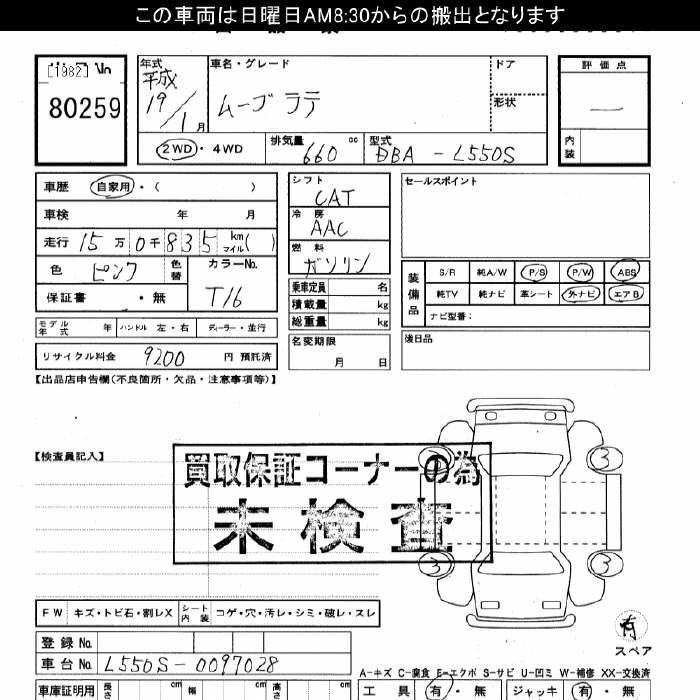 この車両は日曜日AM8:30からの搬出となります
[1982]
80259
年式 平成 19/1月
車名・グレード
ムーヴ ラテ
ドア
形状
評価点
―
内装
2WD・4WD
排気量 660 cc
型式 DBA-L550S
車歴 自家用・( )
車検 年 月
走行 15万0千835 km マイル( )
色 ピンク 色替
カラーNo. T16
保証書 ・無
モデル年式 年 ハンドル 左・右 ディーラー・並行
リサイクル料金 9200 円 預託済
シフト CAT
冷房 AAC
燃料 ガソリン
乗車定員 名
積載量 kg
総重量 kg
名変期限
月 日
セールスポイント
装備品
S/R 純A/W P/S P/W ABS
純TV 純ナビ 革シート 外ナビ エアB
ナビ型番:
後日品
【出品店申告欄(不良箇所・欠品・注意事項等)】
【検査員記入】
買取保証コーナーの為
未検査
3 3
3 3
有
スペア
FW キズ・トビ石・割レX シート内装 コゲ・穴・汚レ・シミ・破レ・スレ
登録No.
車台No. L550S-0097028
A-キズ C-腐食 E-エクボ S-サビ U-凹ミ W-補修 XX-交換済
車庫証明用 長さ cm 幅 cm 高さ cm
工具 有・無 ジャッキ 有・無